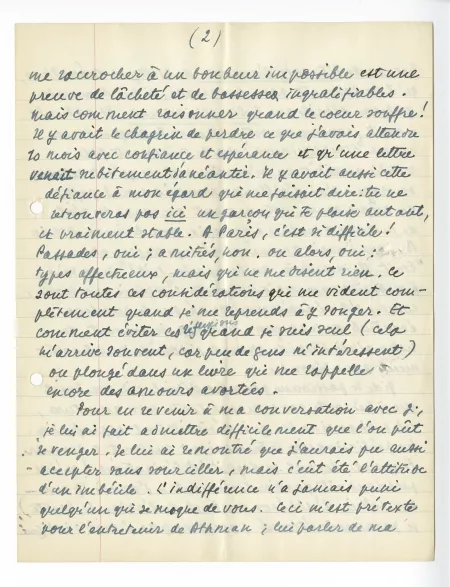 (2)
me raccrocher à un bonheur impossible est une
preuve de lâcheté et de bassesses inqualifiables.
mais comment raisonner quand le coeur souffre!
Il y avait le chagrin de perdre ce que j'avais attendu
10 mois avec confiance et espérance et qu'une lettre
venait subitement d'anéantir. Il y avait aussi cette
défiance à mon égard qui me faisait dire: tu ne
retrouveras pas ici un garçon qui te plaise autant,
et vraiment stable. A Paris, c'est si difficile!
Passades, oui; amitiés, non. ou alors, oui:
types affectueux, mais qui ne me disent rien. ce
sont toutes ces considérations qui me vident com-
plètement quand je me reprends à y songer. Et
comment éviter ces quand je suis seul (cela
m'arrive souvent, car peu de gens m'intéressent)
ou plongé dans un livre qui me rappelle
encore des amours avortées.
Pour en revenir à ma conversation avec J,
je lui ai fait admettre difficilement que l'on pût
se venger. Je lui ai remontré que j'aurais pu aussi
accepter sans sourciller, mais c'eût été l'attitude
d'un imbécile. L'indifférence n'a jamais puni
quelqu'un qui se moque de vous. Ceci m'est prétexte
pour l'entretenir de Athman; lui parler de ma